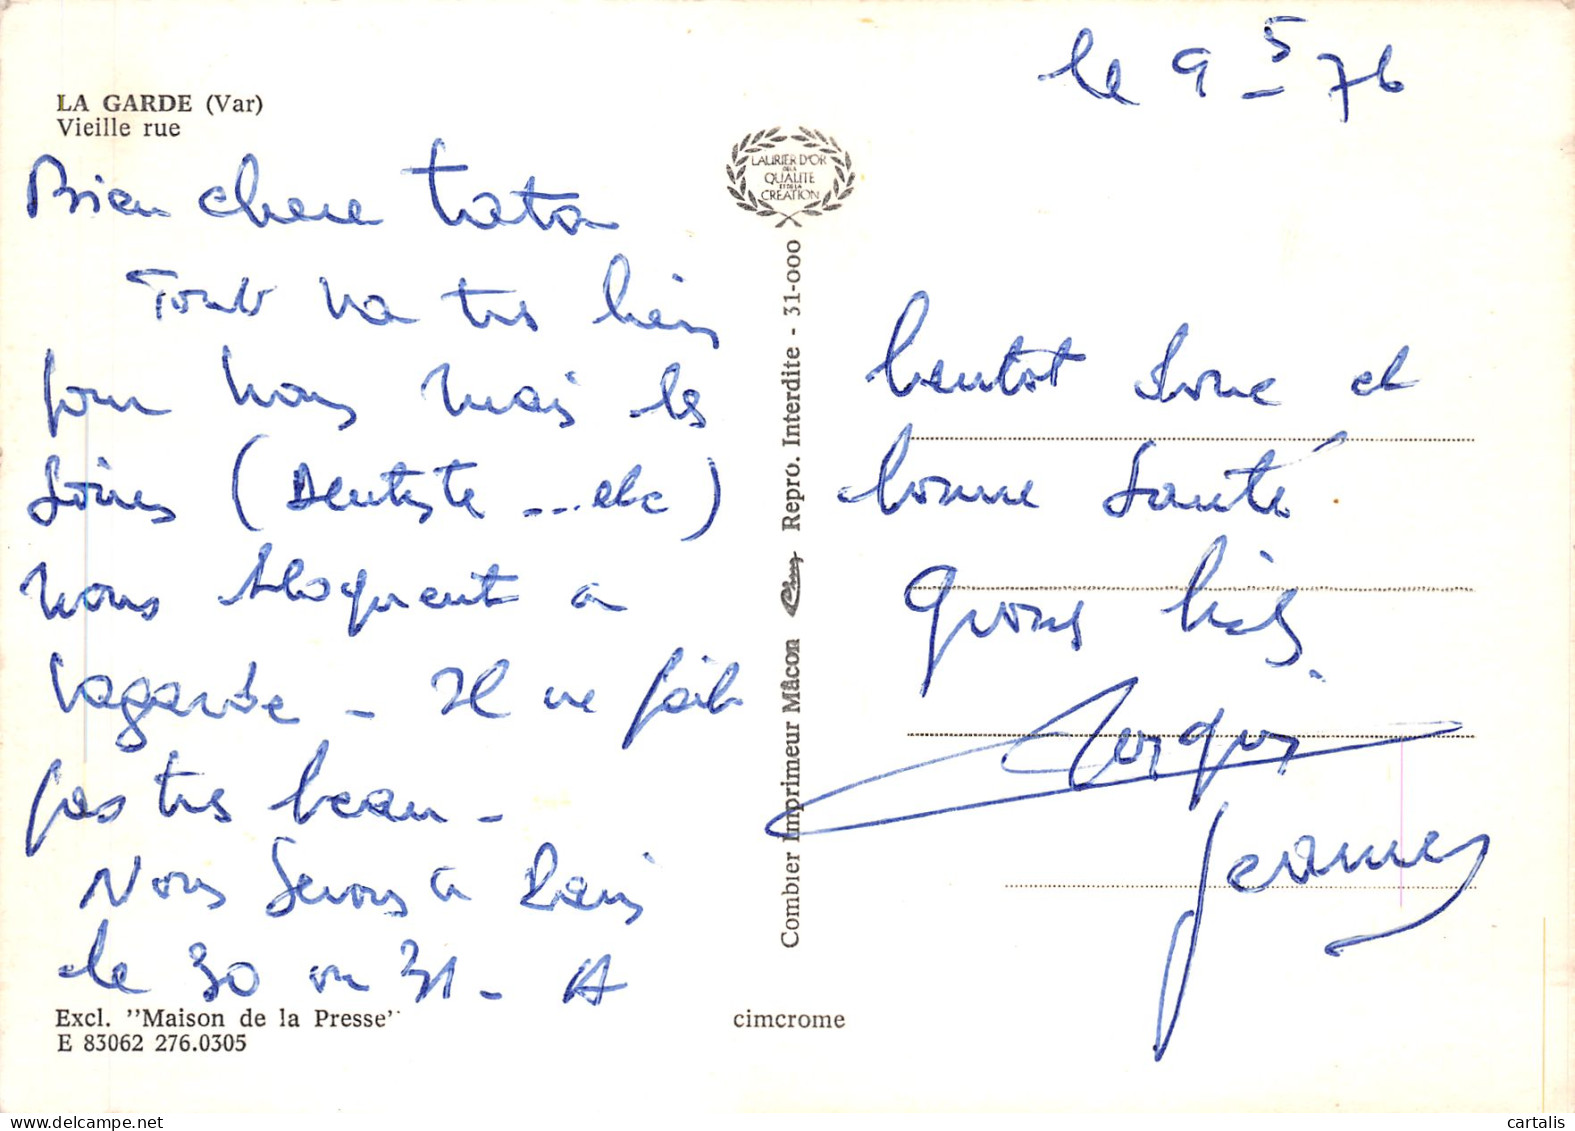 le 9 5 76
LA GARDE (Var)
Vieille rue
Bien chere tata
Tout va tres bien
pour nous mais les
soins (Dentiste ... etc)
nous bloquent a
lagarde _ Il ne fait
pas tres beau _
Nous serons a Paris
le 30 ou 31 _ A
bientot donc et
bonne santé.
gros
Jeannes
LAURIER D'OR
DE LA
QUALITE
ET DE LA
CREATION
Combier Imprimeur Mâcon Repro. Interdite - 31-000
Excl. "Maison de la Presse"
E 83062 276.0305
cimcrome
cartalis